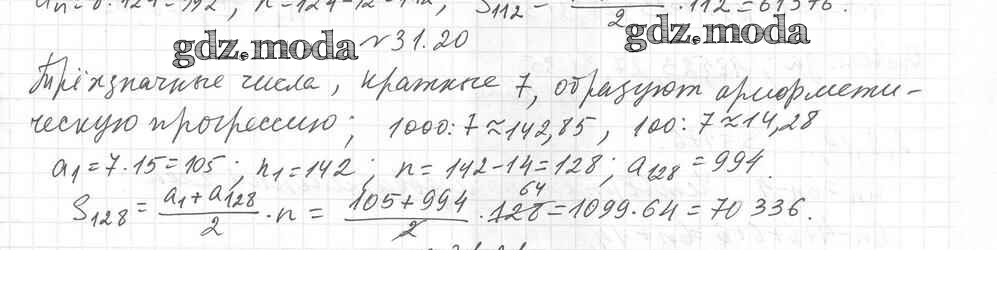 S₁₁₂ = 2 · 112 = 61376.
gdz.moda №31.20 gdz.moda
Трёхзначные числа, кратные 7, образуют арифмети-
ческую прогрессию; 1000:7≈142,85, 100:7≈14,28
a₁=7·15=105; n₁=142; n=142-14=128; a₁₂₈=994.
S₁₂₈= (a₁+a₁₂₈)/2 · n = (105+994)/2 · 128 64 =1099·64=70336.